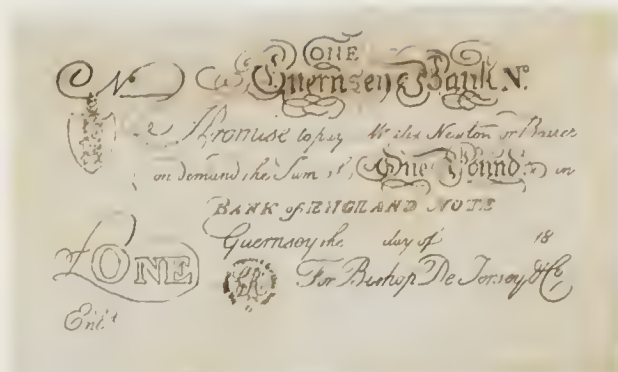 ONE
No Guernsey Bank No.
I Promise to pay Mr Alex Newton or Bearer
on demand the Sum of One Pound in
BANK of ENGLAND NOTE
Guernsey the day of 18
£ONE For Bishop De Jersey & Co.
Ent.d